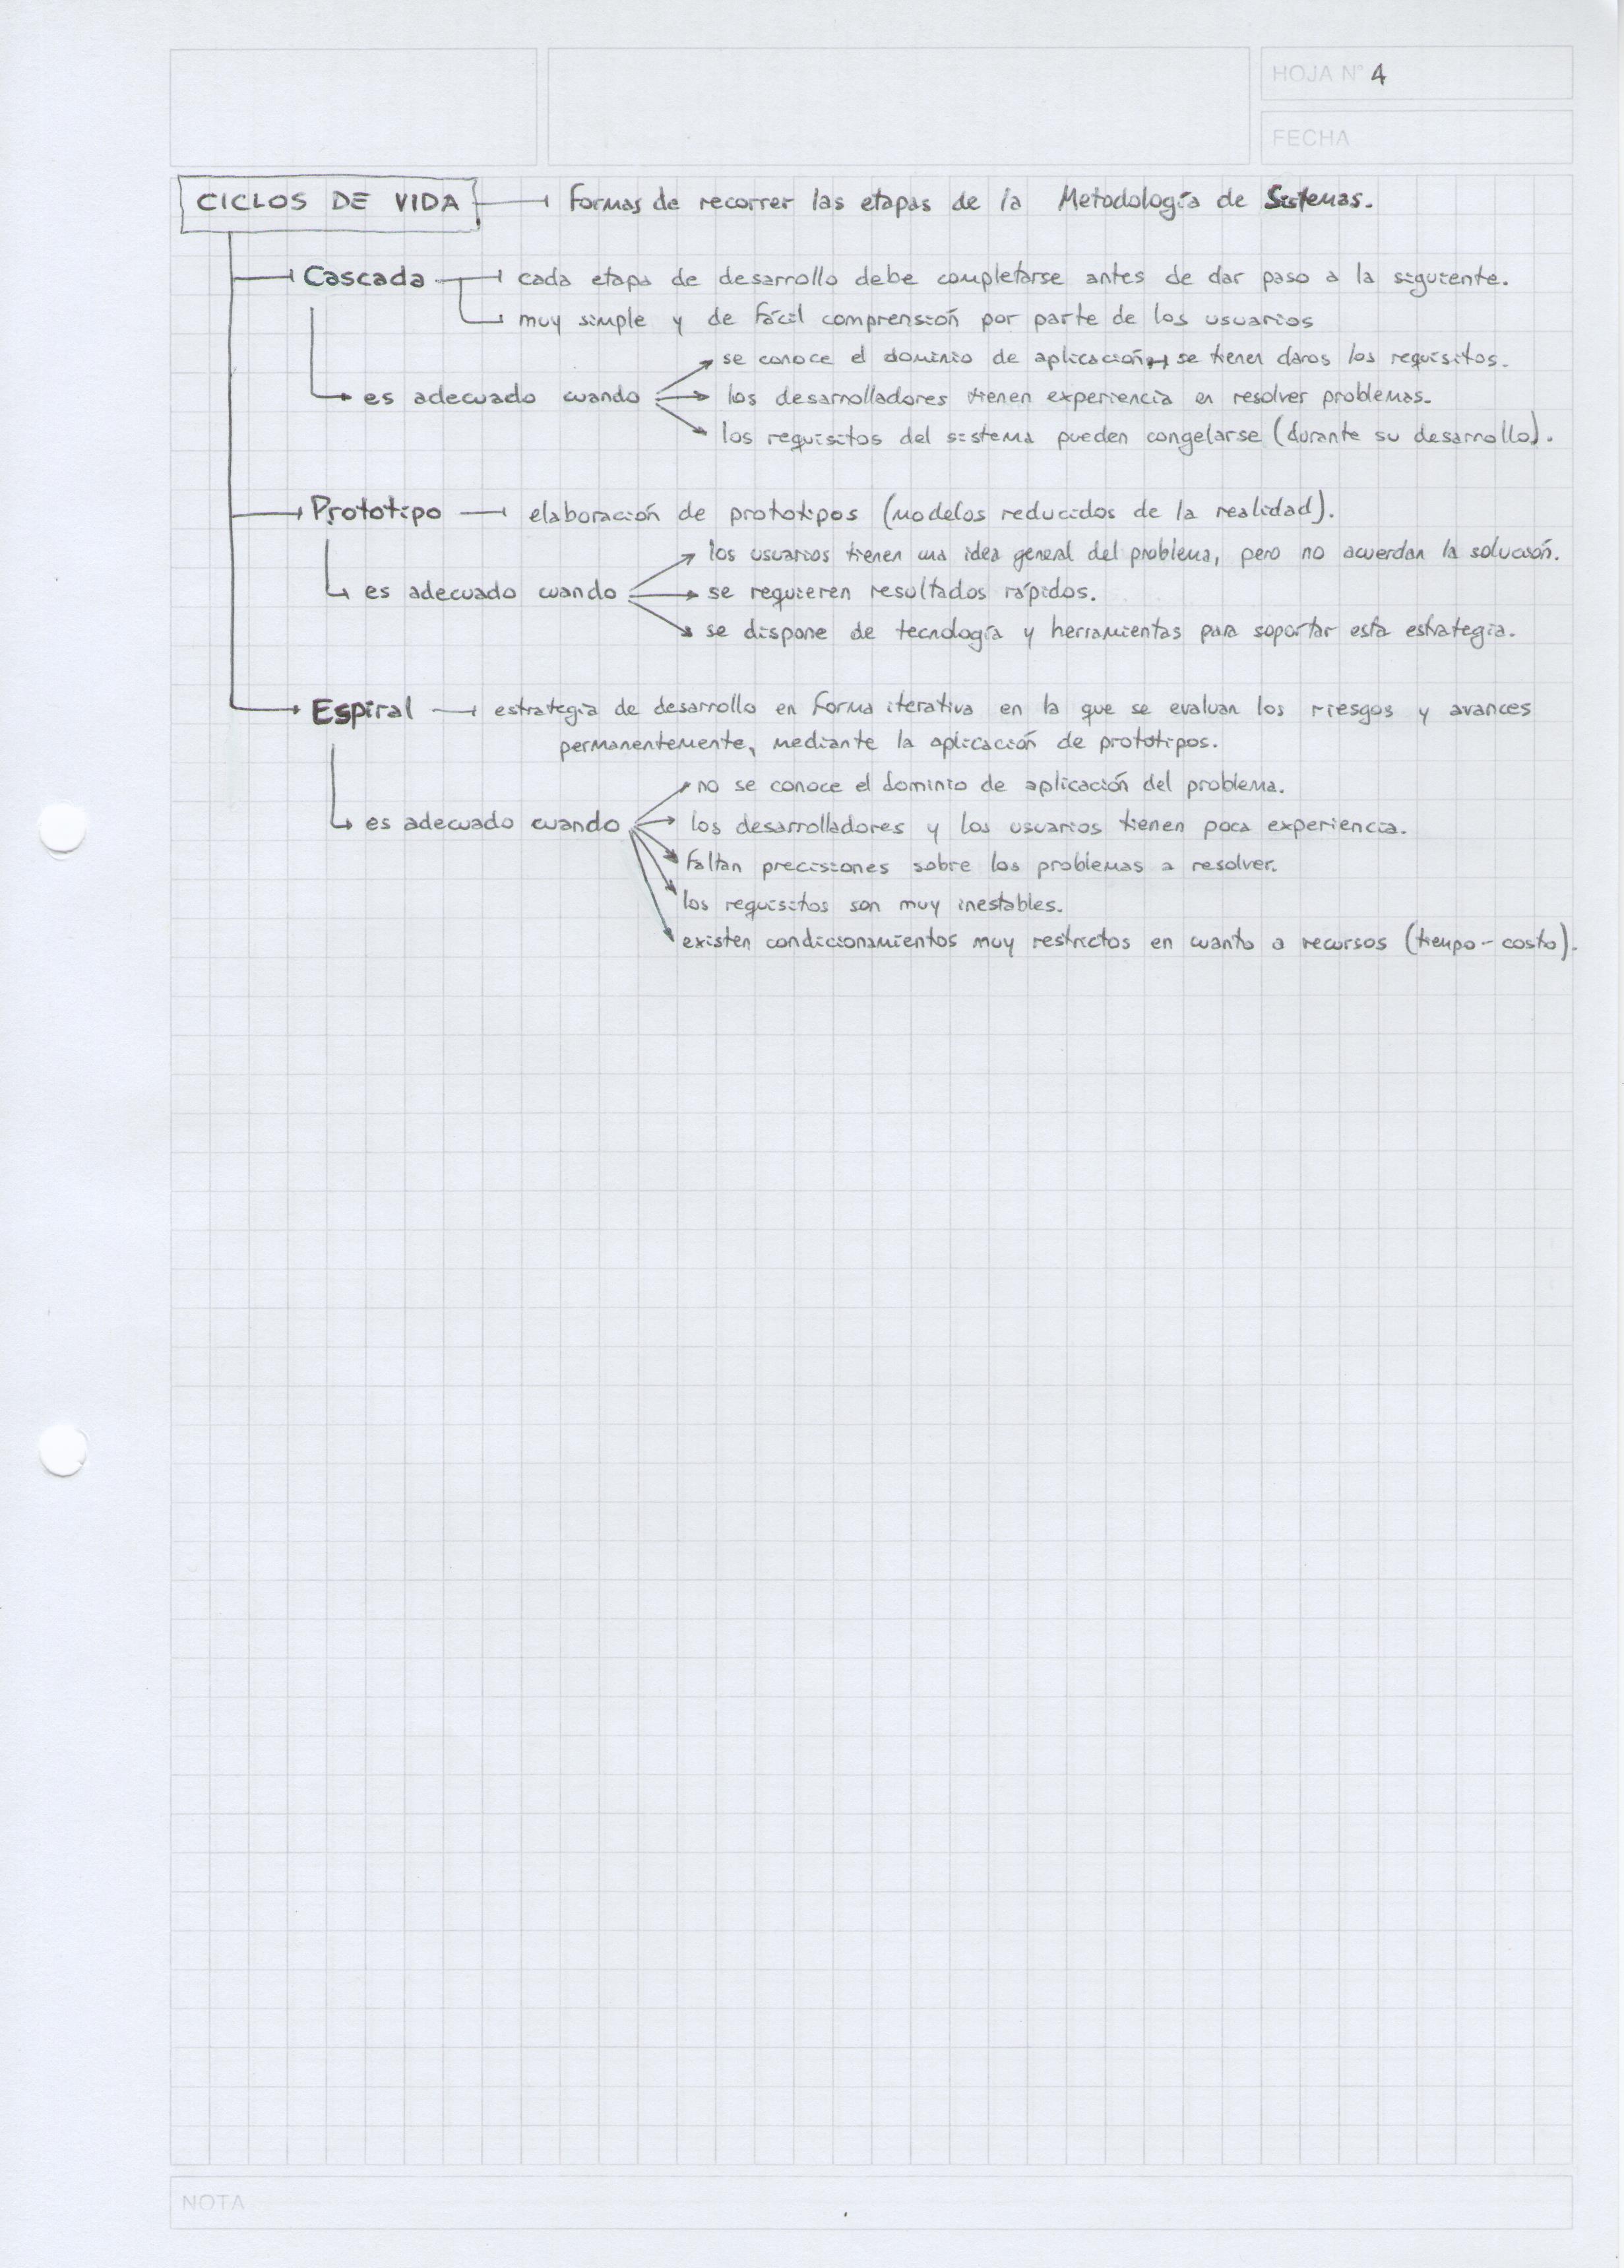 HOJA N° 4
FECHA
CICLOS DE VIDA → Formas de recorrer las etapas de la Metodología de Sistemas.
Cascada → cada etapa de desarrollo debe completarse antes de dar paso a la siguiente.
muy simple y de fácil comprensión por parte de los usuarios
se conoce el dominio de aplicación → se tienen claros los requisitos.
es adecuado cuando → los desarrolladores tienen experiencia en resolver problemas.
los requisitos del sistema pueden congelarse (durante su desarrollo).
Prototipo → elaboración de prototipos (modelos reducidos de la realidad).
los usuarios tienen una idea general del problema, pero no acuerdan la solución.
es adecuado cuando → se requieren resultados rápidos.
se dispone de tecnología y herramientas para soportar esta estrategia.
Espiral → estrategia de desarrollo en forma iterativa en la que se evaluan los riesgos y avances
permanentemente, mediante la aplicación de prototipos.
no se conoce el dominio de aplicación del problema.
es adecuado cuando → los desarrolladores y los usuarios tienen poca experiencia.
faltan precisiones sobre los problemas a resolver.
los requisitos son muy inestables.
existen condicionamientos muy restrictos en cuanto a recursos (tiempo - costo).
NOTA